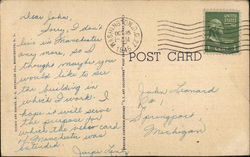 Dear John,
Sorry, I don't
live in Manchester
any more, so I
thought maybe you
would like to see
the building in
which I work. I
hope it will serve
the purpose for
which the other card
of Manchester was
intended.
WASHINGTON, D.C.
1946
POST CARD
John Leonard
Springport,
Michigan